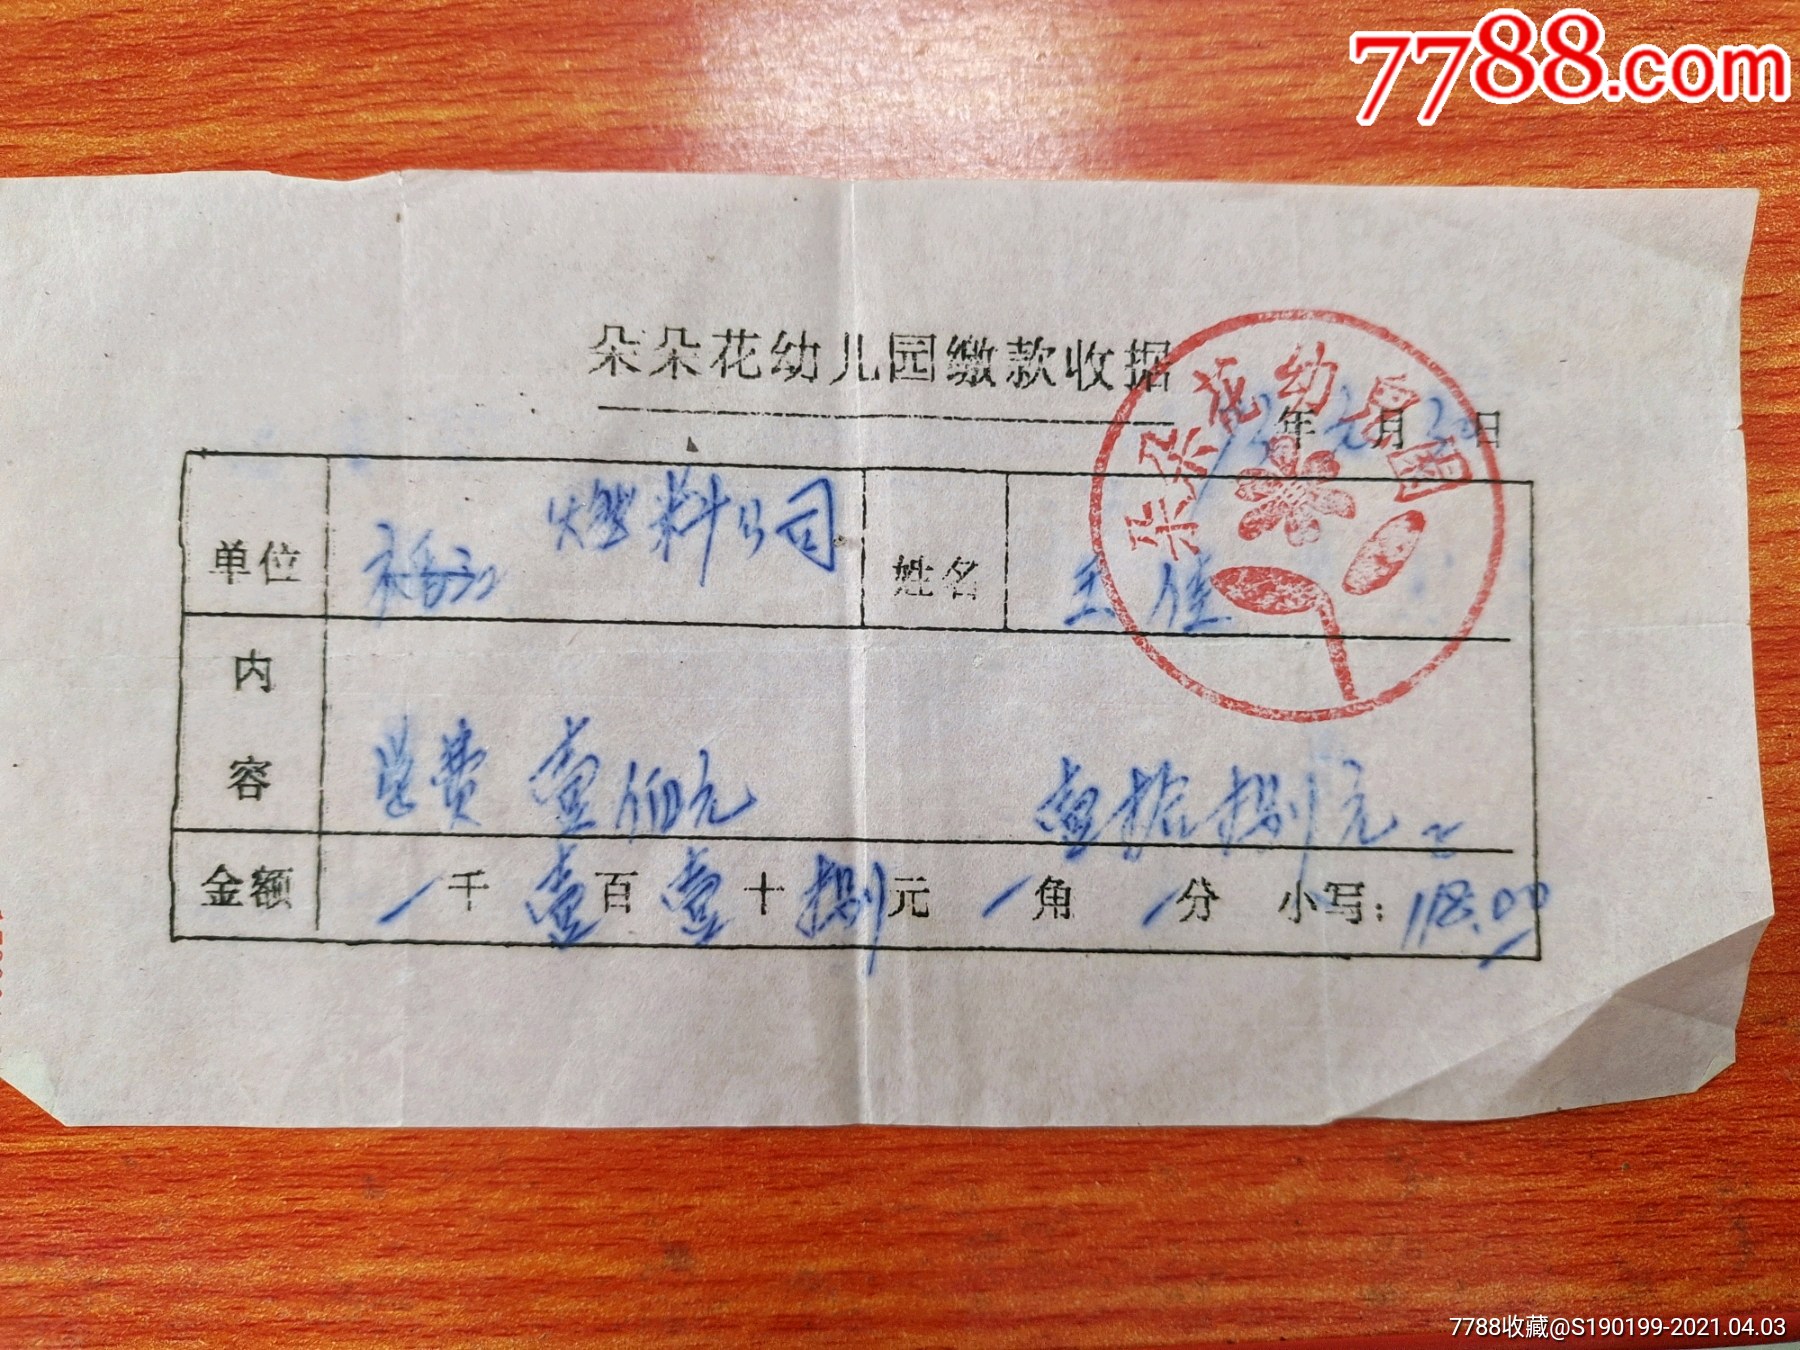 7788.com
朵朵花幼儿园缴款收据
朵朵花幼儿园
年 元月30日
单位 燃料公司 姓名 王佳
内容 学费 壹佰元 壹拾捌元
金额 千壹百壹十捌元 角 分 小写：118.00
7788收藏@S190199-2021.04.03